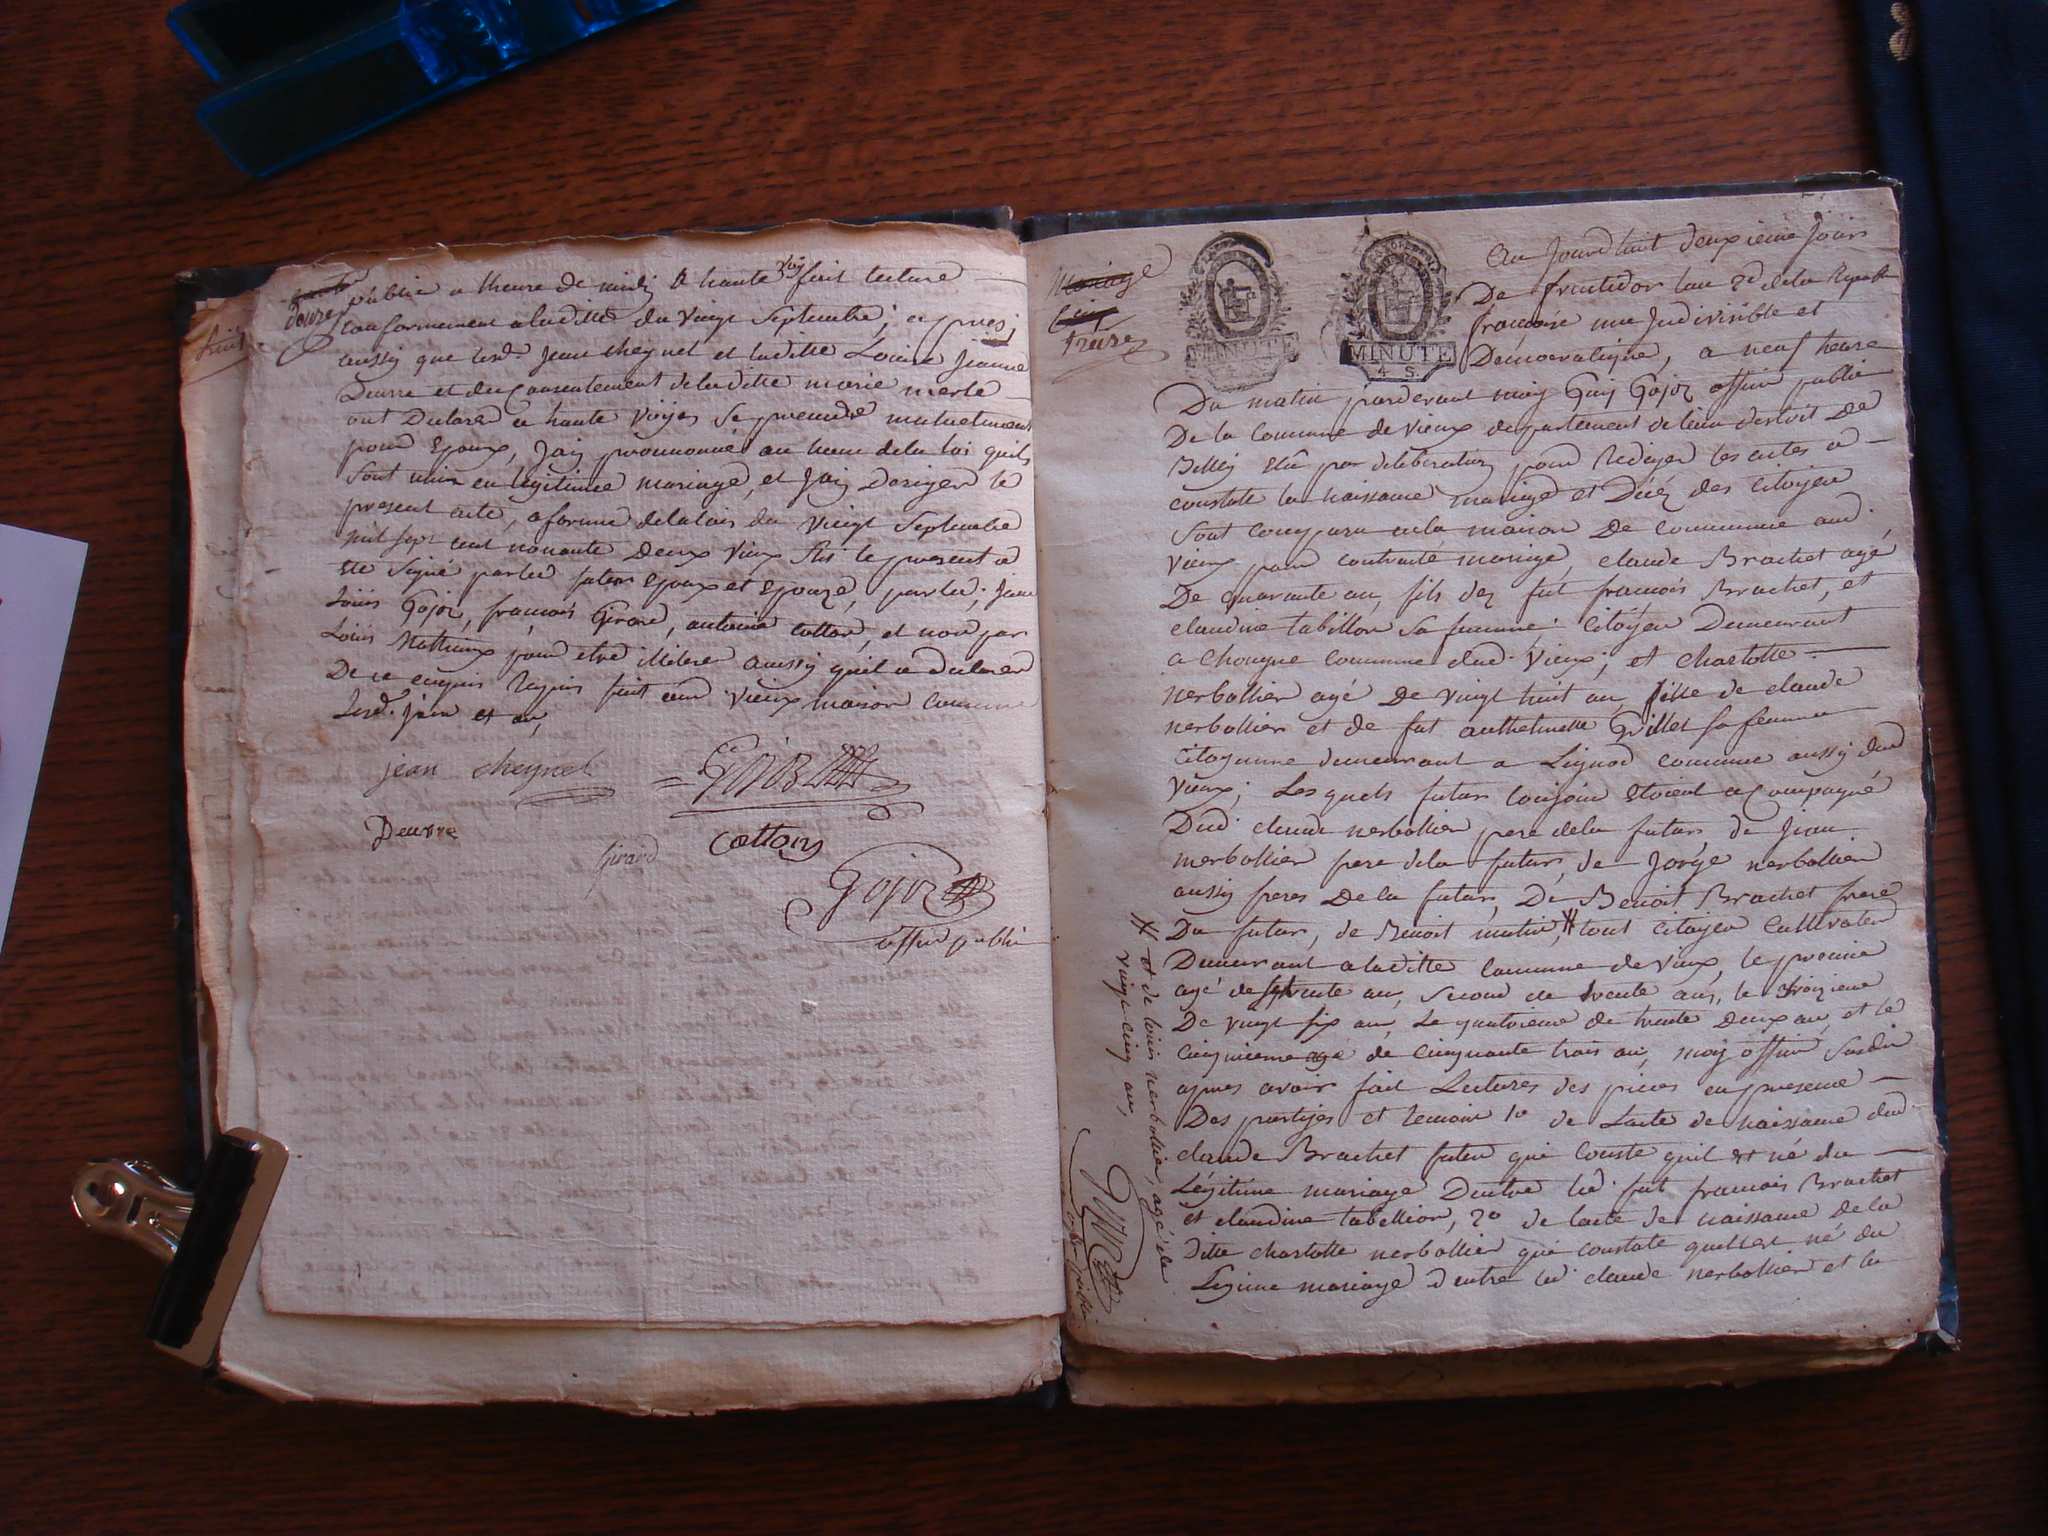 douze
publié a lheure de midy A haute voy fait lecture
conformement aladitte du vingt septembre; apres
aussy que lesd. Jean cheynel et laditte Louise Jeanne
Deurre et du Consentement deladitte marie merle
ont Declaré a haute voÿes se prendre mutuelment
pour Epoux, Jaÿ prononcé au nom dela loi quils
sont unis en legitimee mariage, et Jaÿ Dariger le
present acte, aforme delalois du vingt Septembre
mil sept cent nonante Deux vieux stis le present a
ete signé parled futur Epoux et Epouze, parled; Jean
Loüis Gojoz, francois Girard, antoine cotton, et non par
Loüis Mathieux pour etre illiterer aussy quil a declarer
De ce enquis requis fait aud vieux maison commune
Lesd. Jour et an,
jean cheynel
Gojoz
Deurre
Girard
cotton
Gojoz
officié publi
Mariage
Cinq
treize
MINUTE
4 S.
Au Jourdhuit deuxieme Jours
De fructidor lan 2d dela Repub
francoise une Jndivisible et
Democratique, a neuf heure
Du matin parderant moy Guy Gojoz officié public
De la Commune de vieux departement delain destroit De
Belley Elû par deliberation pour Rediger les actes a
constate la naissance mariage et Décés des Citoÿen
sont comparu enla maison De commune aud.
vieux pour contracté mariage, claude Brachet agé
De quarante an, fils dez fut francois Brachet, et
claudine tabillon sa femme; Citoÿen Demeurant
a Chougne commune dud. vieux; et charlotte
nerbollier agé De vingt huit an, fille de claude
nerbollier et de fut anthelmette Grillet sa femme
citoyenne demeurant a Lignod commune aussy dud
vieux; Les quels futur conjoin etoient acompagné
Dud. claude nerbollier pere dela futur de Jean
nerbollier frere dela futur, de Jorge nerbollier
aussy freres De la futur, De Benoit Brachet frere
Du futur, de Benoit mutin, # tout citoÿen Cultivateu
Demeurant aladitte Commune de vieux, le premie
agé de septente an, second de trente ans, le troizieme
De vingt six an, Le quatrieme de trente Deux an, et le
Cinquieme agé de Cinquante trois an, moy officié susdit
apres avoir fait Lectures des pieces enpresence
Des partyes et temoin 1o de Lacte de naissance dud.
claude Brachet futur qui Conste quil est né du
Légitime mariage Dentre led. fut francois Brachet
et claudine tabellion, 2o de lacte de naissance dela
ditte charlotte nerbollier qui constate quelest né du
Legime mariage dentre led. claude nerbollier et la
# et de loüis nerbollier, agé de
vingt cinq an,